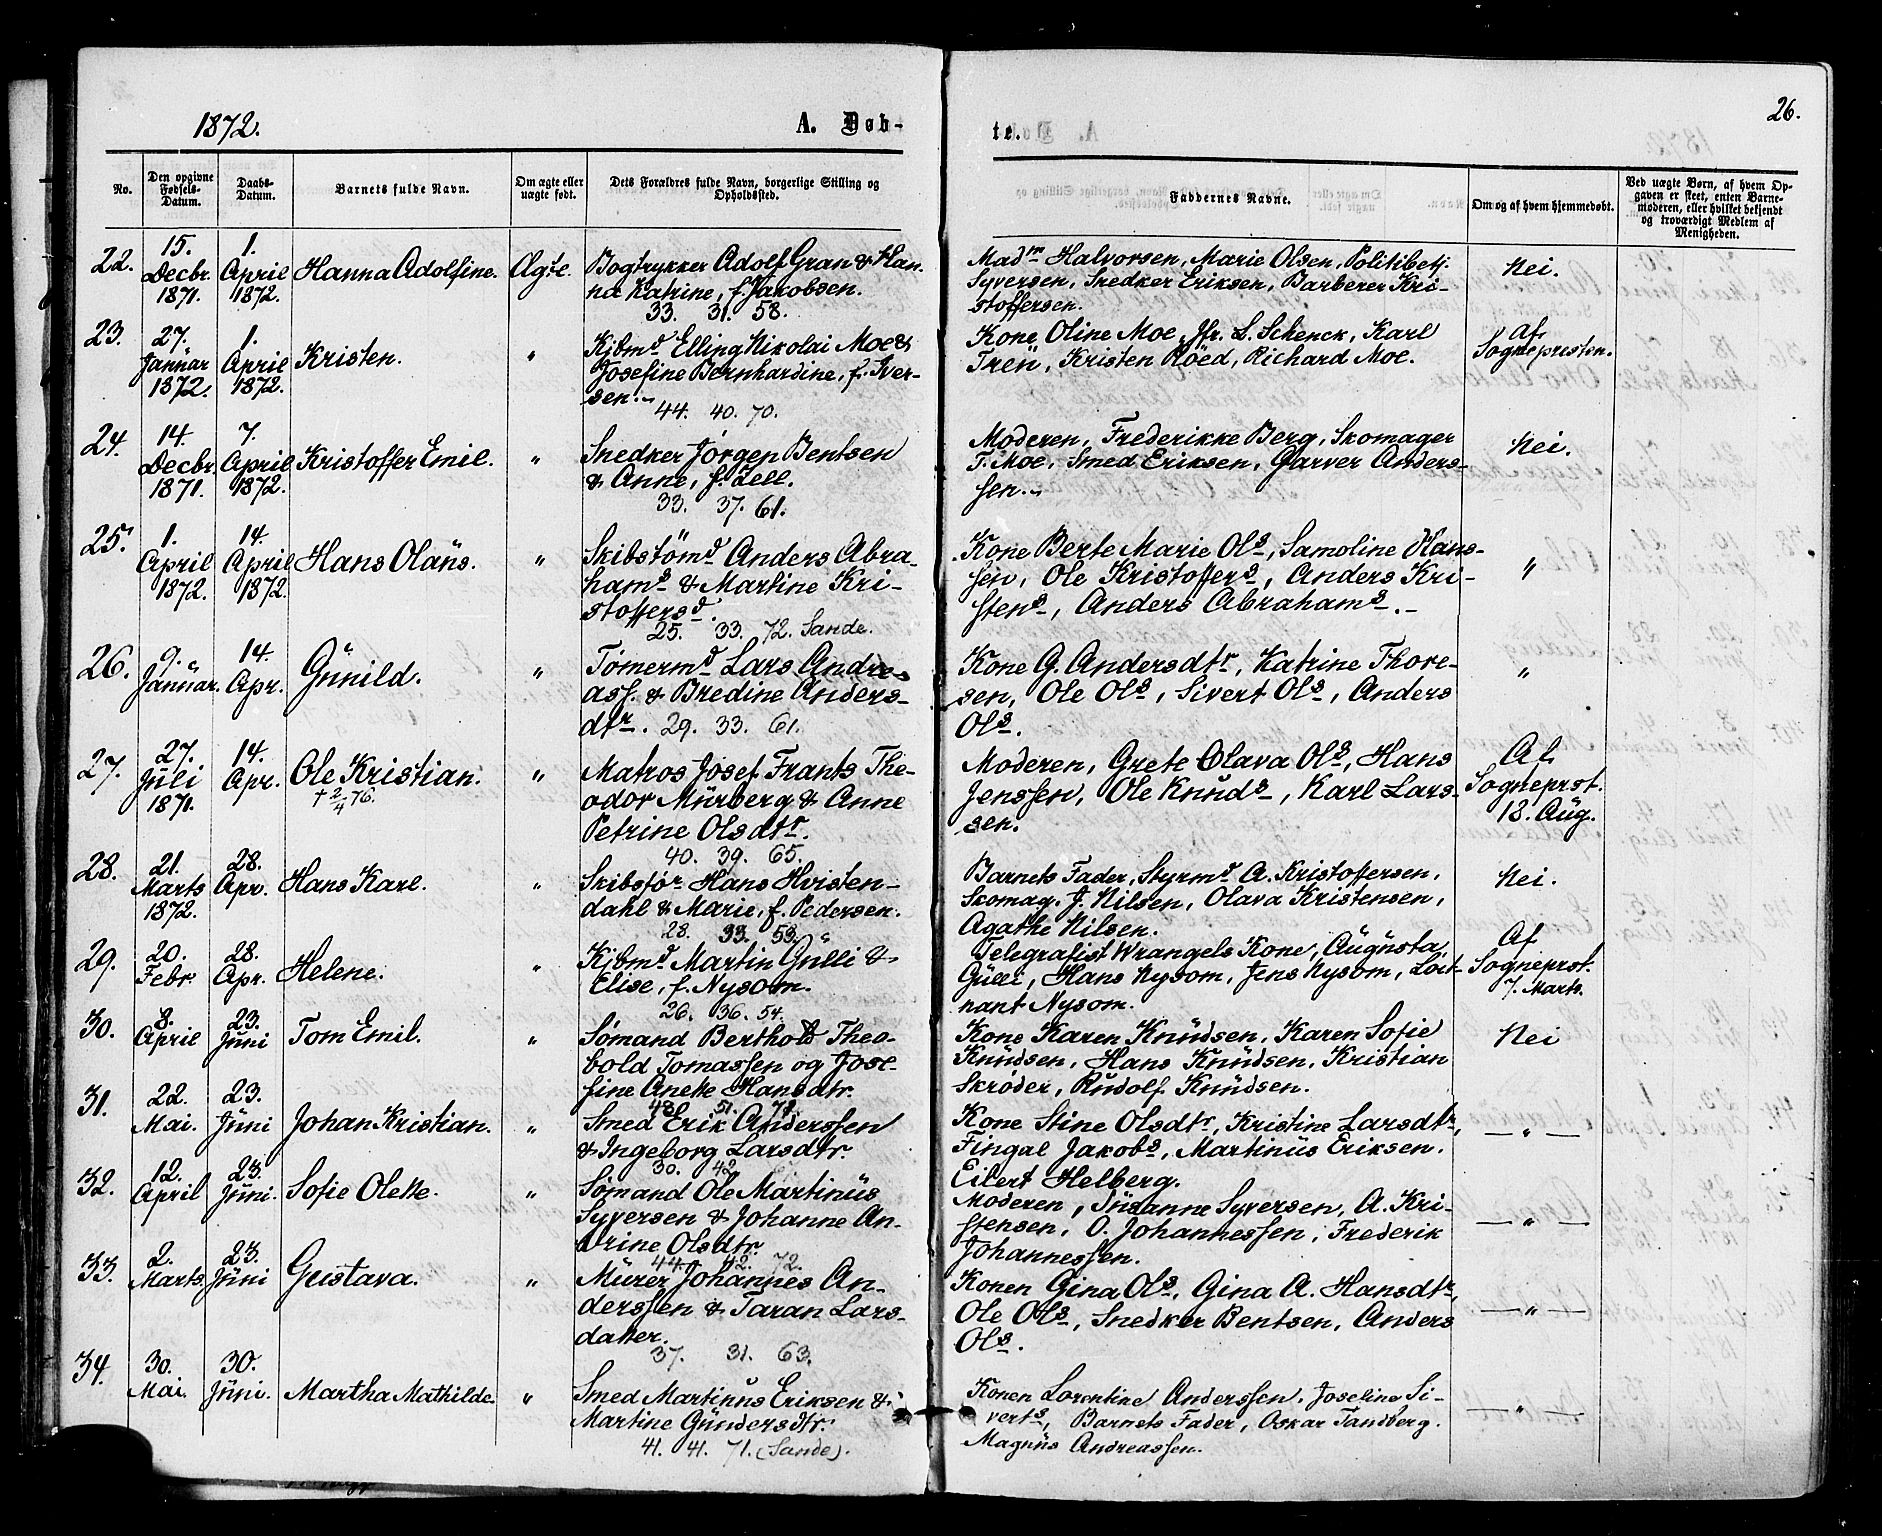 1872.
A. Døb-
te.
26.
No.
Den opgivne Fødsels-Datum.
Daabs-Datum.
Barnets fulde Navn.
Om ægte eller uægte født.
Dets Forældres fulde Navn, borgerlige Stilling og Opholdssted.
Faddernes Navne.
Om og af hvem hjemmedøbt.
Ved uægte Børn, af hvem Opgaven er skeet, enten Barnemoderen, eller hvilket bekjendt og troværdigt Medlem af Menigheden.
22.
15. Decbr. 1871.
1. April 1872.
Hanna Adolfine.
Ægte.
Bogtrykker Adolf Gran & Han-
na Katrine, f. Jakobsen.
33. 31. 58.
Madm Halvorsen, Marie Olsen, Politibetj.
Syversen, Snedker Eriksen, Barberer Kri-
stoffersen.
Nei.
23.
27. Januar 1872.
1. April 1872.
Kristen.
"
Kjbmd Elling Nikolai Moe &
Josefine Bernhardine, f. Iver-
sen.
44. 40. 70.
Kone Oline Moe, Jfr. L. Schenck, Karl
Treu, Kristen Röed, Richard Moe.
Af
Sognepresten.
24.
14. Decbr. 1871.
7. April 1872.
Kristoffer Emil.
"
Snedker Jörgen Bentsen
& Anne, f. Lell.
33. 37. 61.
Moderen, Frederikke Berg, Skomager
T. Moe, Smed Eriksen, Garver Anders-
sen.
Nei.
25.
1. April 1872.
14. April 1872.
Hans Olaus.
"
Skibstømd Anders Abra-
hams & Martine Kri-
stoffersd.
25. 33. 72. Sande.
Kone Berte Marie Ols, Samoline Hans-
sen, Ole Kristoffers, Anders Kri-
stens, Anders Abrahams.
"
26.
9. Januar.
14. Apr.
Gunild.
"
Tømermd Lars Andre-
ass. & Bredine Anders-
dtr. 29. 33. 61.
Kone G. Andersdtr, Katrine Thore-
sen, Ole Ols, Sivert Ols, Anders
Ols.
"
27.
27. Juli 1871.
14. Apr.
Ole Kristian.
† 2/4 76.
"
Matros Josef Frants The-
odor Murberg & Anne
Petrine Olsdtr.
40. 39. 65.
Moderen, Grete Olava Ols, Hans
Jenssen, Ole Knuds, Karl Lars-
sen.
Af
Sogneprst.
18. Aug.
28.
21. Marts 1872.
28. Apr.
Hans Karl.
"
Skibsför Hans Hvisten-
dahl & Marie, f. Pedersen.
28. 33. 53. "
Barnets Fader, Styrmd A. Kristoffersen,
Skomag. J. Nilsen, Olava Kristensen,
Agathe Nilsen.
Nei.
29.
20. Febr.
28. Apr.
Helene.
"
Kjbmd Martin Gulli &
Elise, f. Nysom.
26. 36. 54.
Telegrafist Wrangels Kone, Augusta
Gulli, Hans Nysom, Jens Nysom, Löit-
nant Nysom.
Af
Sogneprst.
7. Marts.
30.
8. April
23. Juni
Tom Emil.
"
Sømand Berthold Theo-
bold Tomassen og Jose-
fine Anette Hansdtr.
48. 51. 72.
Kone Karen Knudsen, Karen Sofie
Knudsen, Hans Knudsen, Kristian
Skrøder, Rudolf Knudsen.
Nei
31.
22. Mai.
23. Juni
Johan Kristian.
"
Smed Erik Anderssen
& Ingeborg Larsdtr.
30. 42.
Kone Stine Olsdtr, Kristine Larsdtr,
Fingal Jakobs, Martinus Eriksen.
Eilert Helberg.
— " —
32.
12. April
23. Juni.
Sofie Olette.
"
Sømand Ole Martinus
Syversen & Johanne An-
drine Olsdtr.
44. 42. 72.
Moderen, Susanne Syversen, A. Kri-
stensen, O. Johannessen, Frederik
Johannessen.
— " —
33.
2. Marts
23. Juni
Gustava.
"
Murer Johannes An-
derssen & Taran Lars-
datter.
37. 31. 63.
Konen Gina Ols, Gina A. Hansdtr,
Ole Ols, Snedker Bentsen, Anders
Ols.
— " —
34.
30. Mai.
30. Juni.
Martha Mathilde.
"
Smed Martinus Eriksen &
Martine Gundersdtr.
41. 41. 71. (Sande).
Konen Lorentine Anderssen, Joseline Si-
verts, Barnets Fader, Oskar Tandberg.
Magnus Andreassen.
— " —